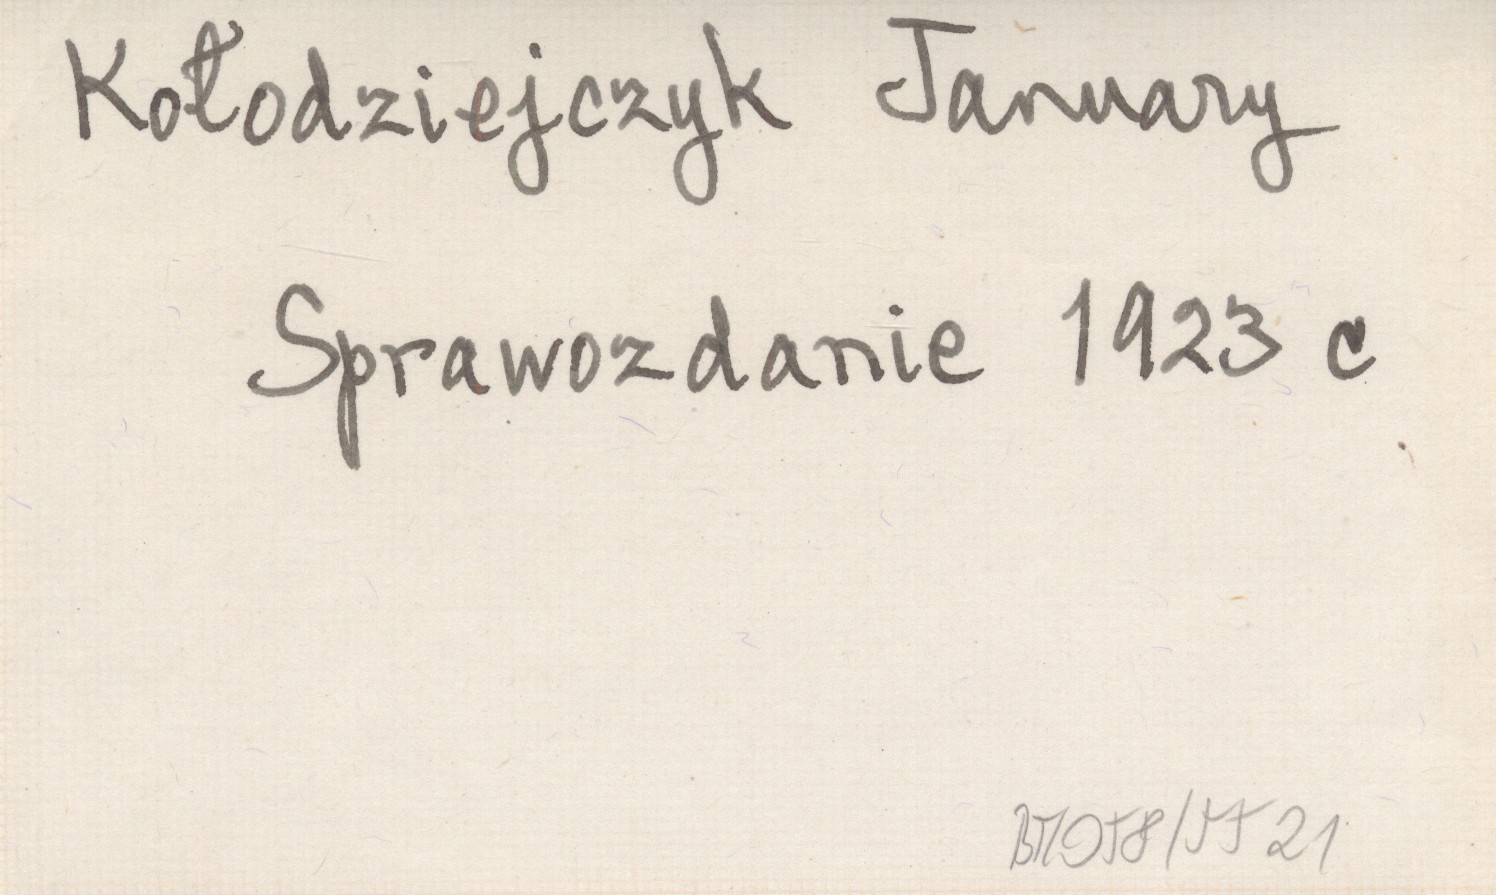 Kołodziejczyk January
Sprawozdanie 1923 c
21